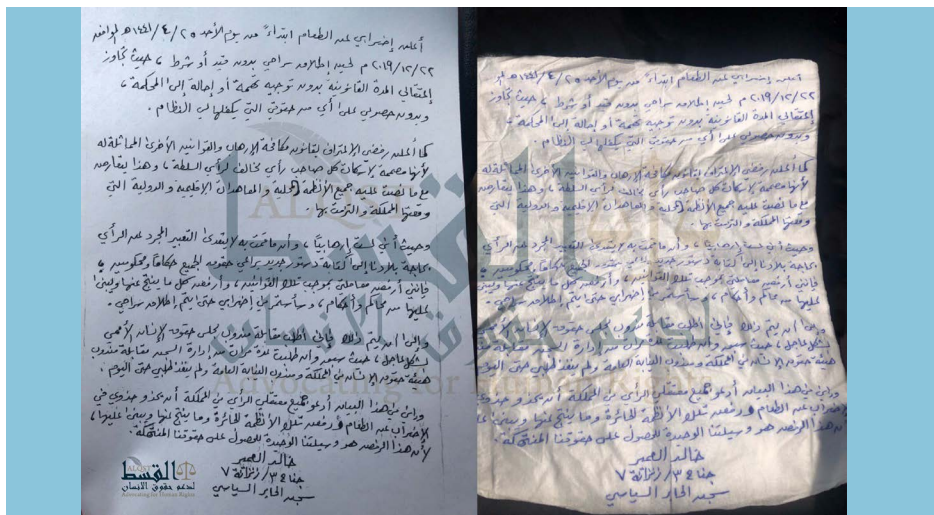 أعلن إضرابي عن الطعام ابتداءً من يوم الأحد ٢٥/٤/١٤٤١هـ الموافق
٢٠١٩/١٢/٢٢م لحين إطلاق سراحي بدون قيد أو شرط، حيث تجاوز
إعتقالي المدة القانونية بدون توجيه تهمة أو إحالة إلى المحكمة،
وبدون حصولي على أي من حقوقي التي يكفلها لي النظام.
كما أعلن رفضي الإعتراف بقانون مكافحة الإرهاب والقوانين الأخرى المماثلة له
لأنها مصممة لإسكات كل صاحب رأي مخالف لرأي السلطة، وهذا يتعارض
مع ما نصت عليه جميع الأنظمة المحلية والمعاهدات الإقليمية والدولية التي
وقعتها المملكة والتزمت بها.
وحيث أني لست إرهابياً، وأن ما قمت به لا يتعدى التعبير المجرد عن الرأي
بحاجة بلادنا إلى كتابة دستور جديد يراعي حقوق الجميع حكاماً ومحكومين،
فإنني أرفض معاملتي بموجب تلك القوانين، وأرفض كل ما ينتج عنها ويبنى
عليها من محاكم وأحكام، وسأستمر في إضرابي حتى يتم إطلاق سراحي.
وإلى أن يتم ذلك فإني أطلب مقابلة مندوب مجلس حقوق الإنسان الأممي
بشكل عاجل، حيث سبق وأن طلبت لعدة مرات من إدارة السجن مقابلة مندوب
هيئة حقوق الإنسان من المملكة ومندوب النيابة العامة ولم ينفذ طلبي حتى اليوم.
وإني من هذا البيان أدعو جميع معتقلي الرأي من المملكة أن يحذو حذوي في
الإضراب عن الطعام ورفض تلك الأنظمة الجائرة وما ينتج عنها ويبنى عليها،
لأن هذا الرفض هو وسيلتنا الوحيدة للحصول على حقوقنا المنتهكة.
خالد العمير
جناح ٣/ زنزانة ٧
سجن الحاير السياسي
ALQST
القسط
لدعم حقوق الإنسان
Advocating for Human Rights
أعلن إضرابي عن الطعام ابتداءً من يوم الأحد ٢٥/٤/١٤٤١هـ
٢٠١٩/١٢/٢٢م لحين إطلاق سراحي بدون قيد أو شرط، حيث تجاوز
إعتقالي المدة القانونية بدون توجيه تهمة أو إحالة إلى المحكمة،
وبدون حصولي على أي من حقوقي التي يكفلها لي النظام.
كما أعلن رفضي الإعتراف بقانون مكافحة الإرهاب والقوانين الأخرى المماثلة له
لأنها مصممة لإسكات كل صاحب رأي مخالف لرأي السلطة، وهذا يتعارض
مع ما نصت عليه جميع الأنظمة المحلية والمعاهدات الإقليمية والدولية التي
وقعتها المملكة والتزمت بها.
وحيث أني لست إرهابياً، وأن ما قمت به لا يتعدى التعبير المجرد عن الرأي
بحاجة بلادنا إلى كتابة دستور جديد يراعي حقوق الجميع حكاماً ومحكومين،
فإنني أرفض معاملتي بموجب تلك القوانين، وأرفض كل ما ينتج عنها ويبنى
عليها من محاكم وأحكام، وسأستمر في إضرابي حتى يتم إطلاق سراحي.
وإلى أن يتم ذلك فإني أطلب مقابلة مندوب مجلس حقوق الإنسان
بشكل عاجل، حيث سبق وأن طلبت لعدة مرات من إدارة السجن مقابلة مندوب
هيئة حقوق الإنسان من المملكة ومندوب النيابة العامة ولم ينفذ طلبي حتى اليوم.
وإني من هذا البيان أدعو جميع معتقلي الرأي من المملكة أن يحذو حذوي في
الإضراب عن الطعام ورفض تلك الأنظمة الجائرة وما ينتج عنها ويبنى
لأن هذا الرفض هو وسيلتنا الوحيدة للحصول على حقوقنا المنتهكة.
خالد العمير
جناح ٣/ زنزانة ٧
سجن الحاير السياسي
ALQST
القسط
لدعم حقوق الإنسان
Advocating for Human Rights